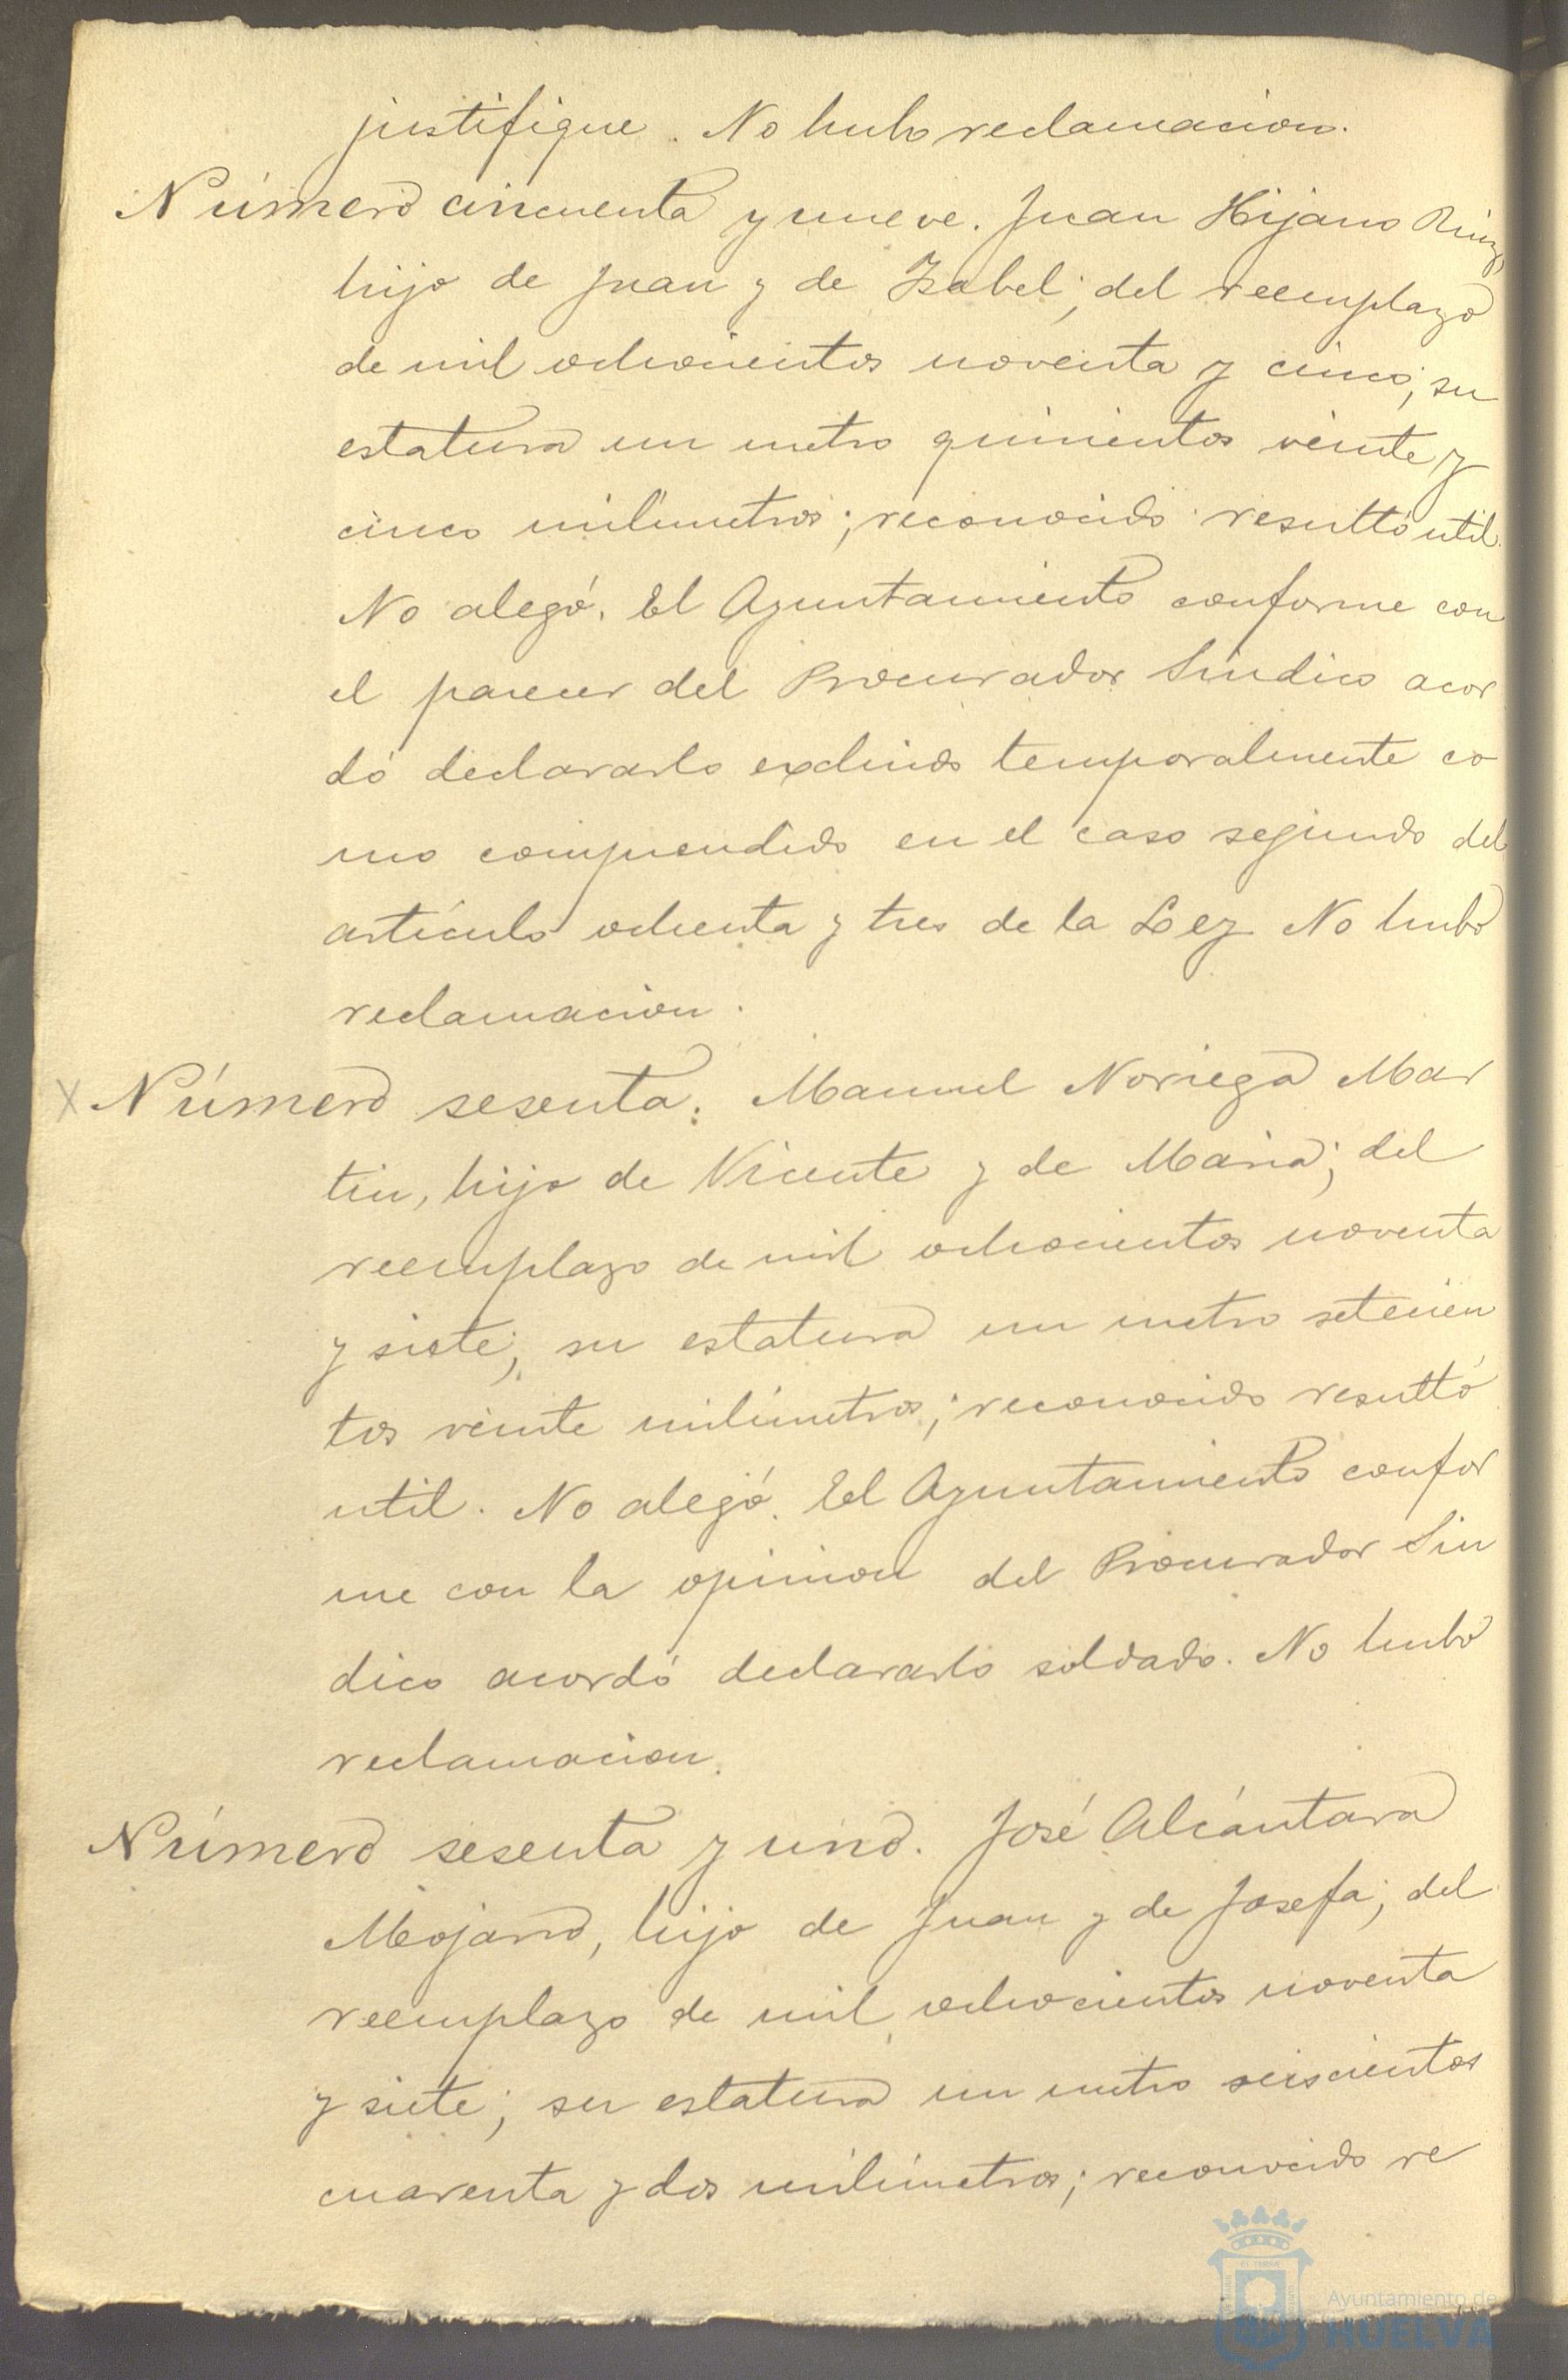 justifique. No hubo reclamacion.
Número cincuenta y nueve. Juan Hijano Ruiz,
hijo de Juan y de Isabel; del reemplazo
de mil ochocientos noventa y cinco; su
estatura un metro quinientos veinte y
cinco milimetros; reconocido resultó util.
No alegó. El Ayuntamiento conforme con
el parecer del Procurador Sindico acor
dó declararlo excluido temporalmente co
mo comprendido en el caso segundo del
artículo ochenta y tres de la Ley. No hubo
reclamacion.
X Número sesenta. Manuel Noriega Mar
tin, hijo de Vicente y de Maria; del
reemplazo de mil ochocientos noventa
y siete; su estatura un metro setecien
tos veinte milimetros; reconocido resultó
util. No alegó. El Ayuntamiento confor
me con la opinion del Procurador Sin
dico acordó declararlo soldado. No hubo
reclamacion.
Número sesenta y uno. José Alcántara
Mojarro, hijo de Juan y de Josefa; del
reemplazo de mil ochocientos noventa
y siete; su estatura un metro seiscientos
cuarenta y dos milimetros; reconocido re
Ayuntamiento de
HUELVA